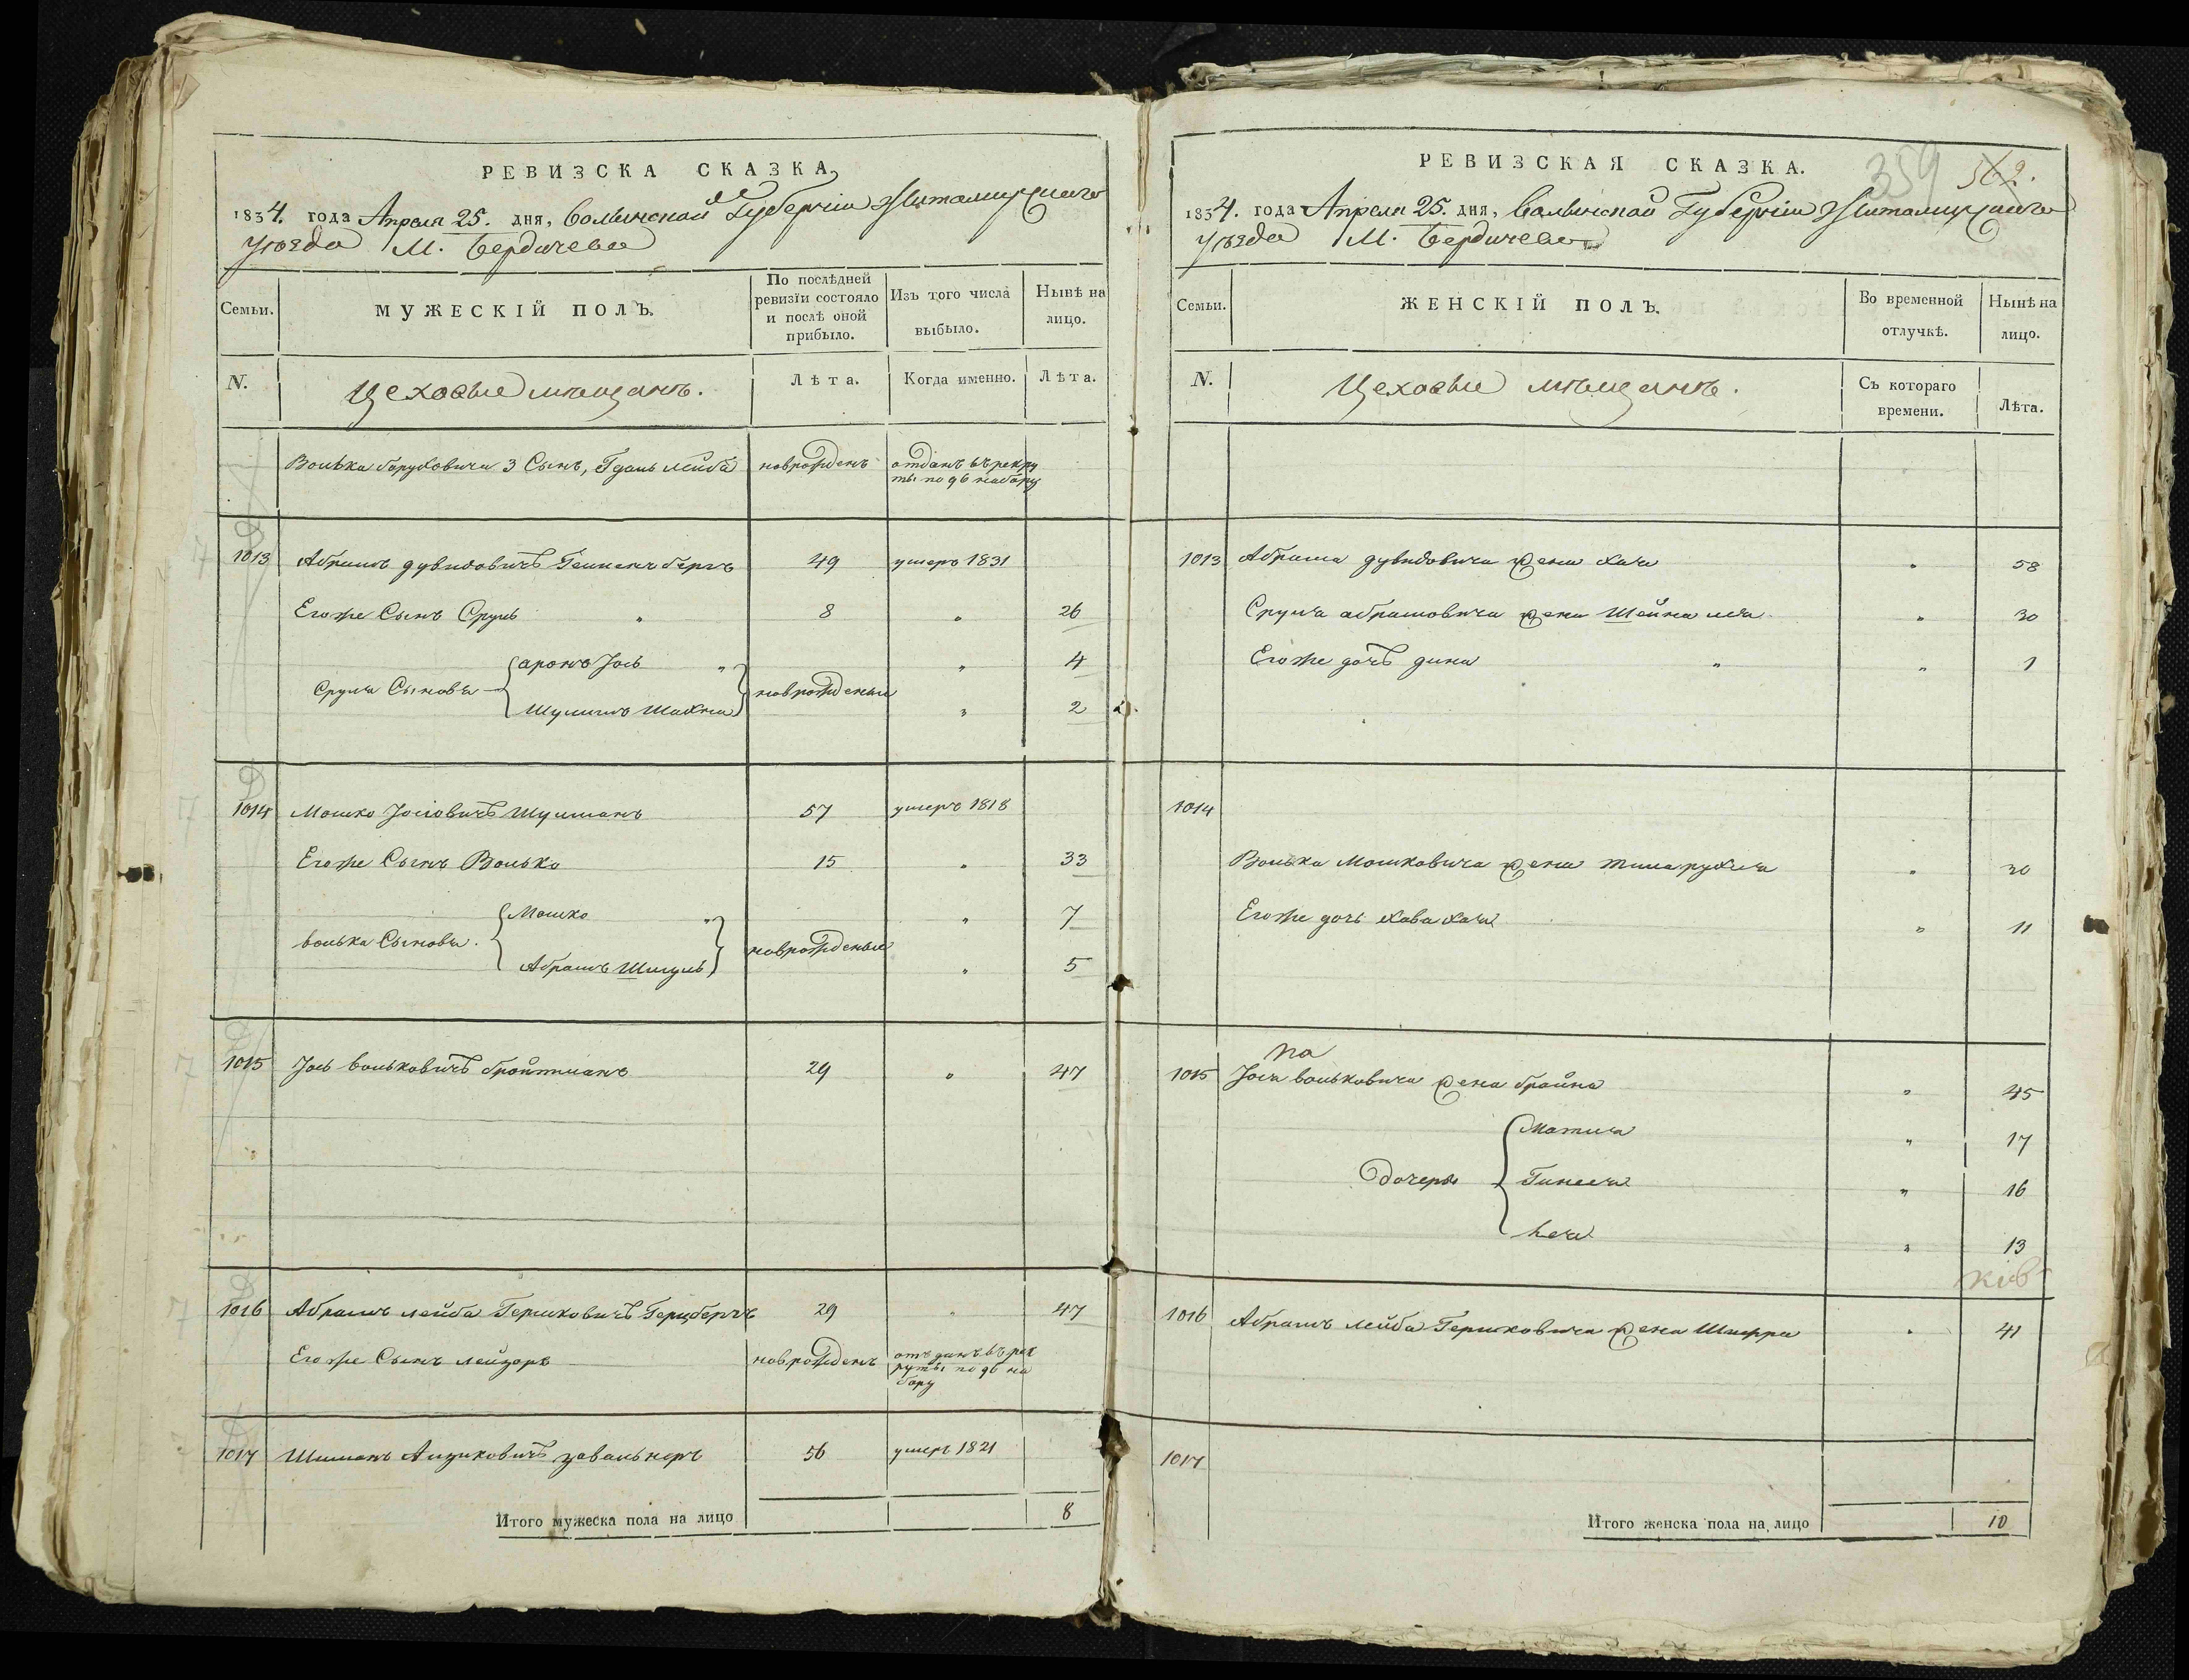 РЕВИЗСКА СКАЗКА,
1834. года Апреля 25. дня, Волынской Губерніи Житомирскаго
Уѣзда М. Бердичева
Семьи. МУЖЕСКІЙ ПОЛЪ. По послѣдней ревизїи состояло и послѣ оной прибыло. Изъ того числа выбыло. Нынѣ на лицо.
N. Цеховые мѣщанѣ. Лѣта. Когда именно. Лѣта.
Волька Боруховича 3 Сынъ, Гдаль Лейба новрожденъ отданъ въ рекру
ты по 96 набору
1013 Абрамъ дувидовичъ 49 умеръ 1831
Егоже Сынъ Сруль " 8 " 26
аронъ Іось " " 4
Сруля Сыновья новрожденыи
Шулимъ Шахна " 2
1014 Мошко Іосіовичъ Шулманъ 57 умеръ 1818
Егоже Сынъ Волько 15 " 33
Мошко " " 7
волька Сыновья. новрожденыи
Абрамъ Шмуль " 5
1015 Іось вольковичъ бройтманъ 29 " 47
1016 Абрамъ лейба Гершковичъ Герцбергъ 29 " 47
Егоже Сынъ лейзоръ новрожденъ отъданъ въ рек
руты по 96 на
бору
1017 Шиманъ Аизиковичъ завальнеръ 56 умеръ 1821
Итого мужеска пола на лицо 8
359 562.
РЕВИЗСКАЯ СКАЗКА.
1834. года Апреля 25. дня, Волынской Губерніи Житомирскаго
Уѣзда М. Бердичева
Семьи. ЖЕНСКІЙ ПОЛЪ. Во временной отлучкѣ. Нынѣ на лицо.
N. Цеховые мѣщанѣ. Съ котораго времени. Лѣта.
1013 Абрама дувидовича жена хая " 58
Сруля абрамовича жена Шейна лея " 30
Егоже дочь дина " " 1
1014
Волька Мошковича жена рухля " 30
Егоже дочь хава хая " 11
1015 Іося вольковича жена брайна " 45
Матля " 17
Дочеры Гинеся " 16
Лея " 13
1016 Абрамъ лейба Гершковича жена Шифра " 41
1017
Итого женска пола на лицо 10